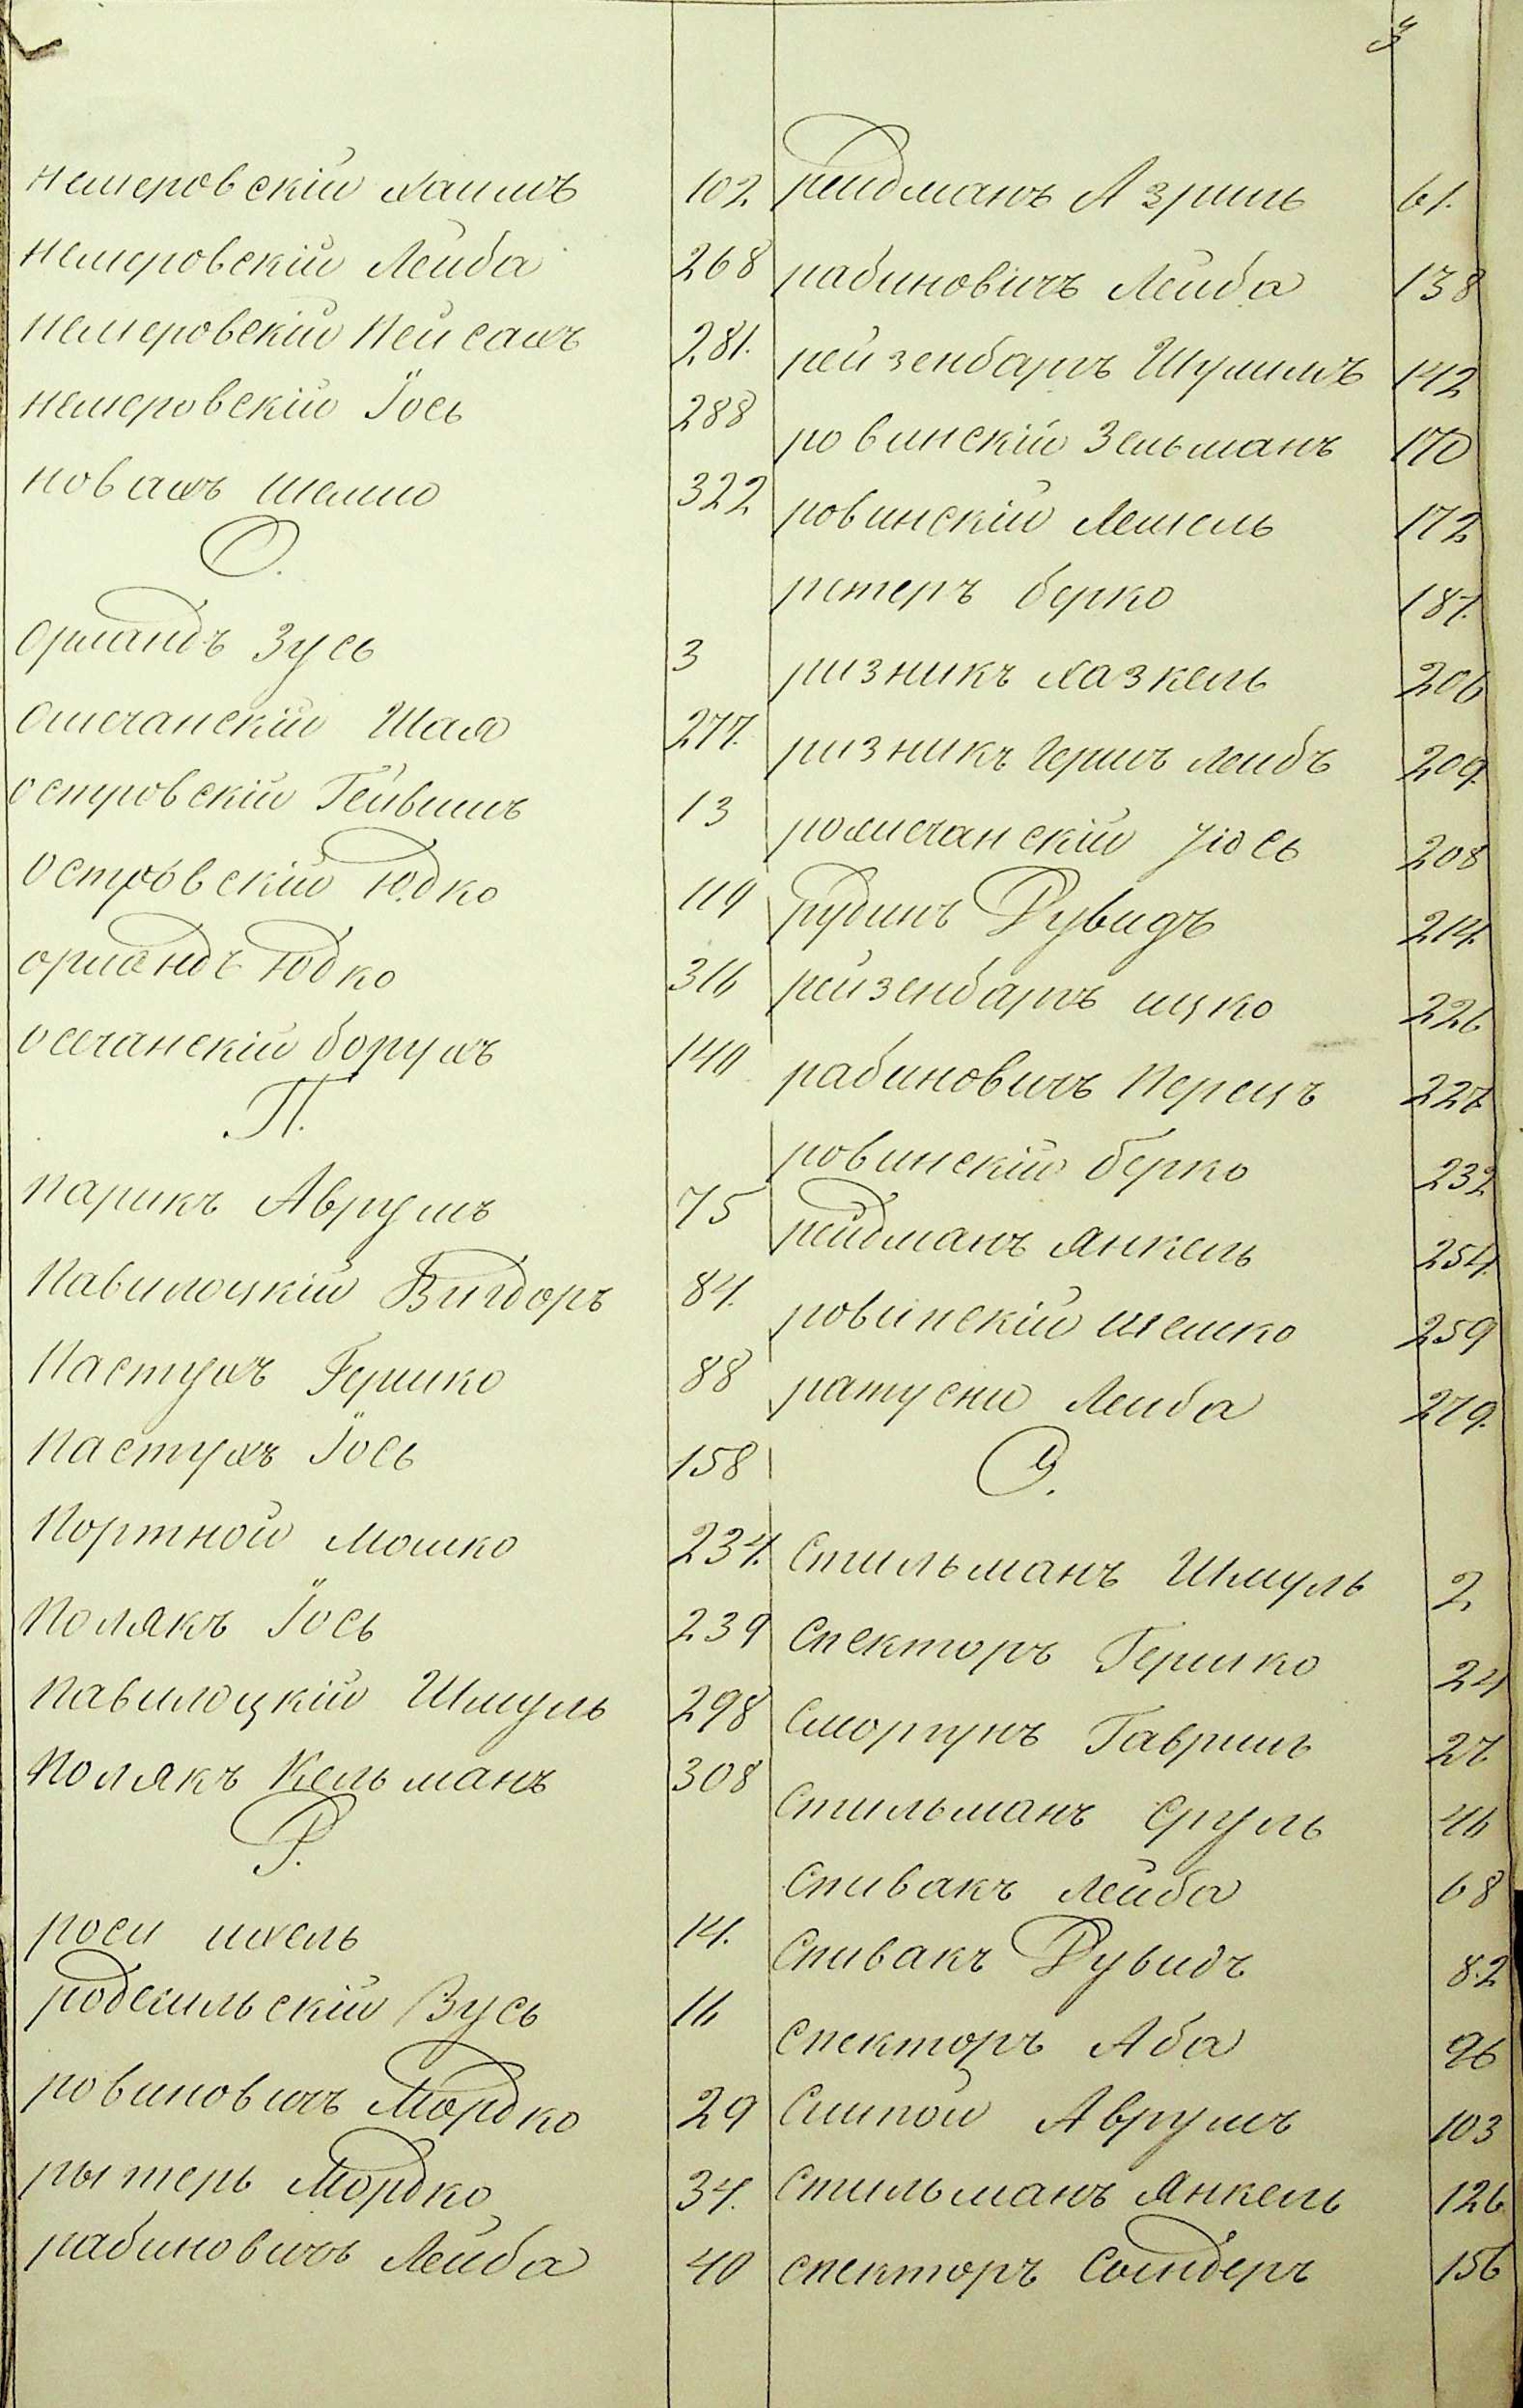 немеровскій хаимъ 102
немеровскій Лейба 268
немеровскій Пейсахъ 281.
немеровскій Іось 288
новахъ шлемо 322
О.
орландъ Зусь 3
Ошечанскій Шая 277.
островскій Гейвишъ 13
островскій Юдко 119
орландъ Юдко 316
осечанскій борухъ 140
П.
парикъ Аврумъ 75
Павилоцкій Вигдоръ 84.
Пастухъ Гершко 88
Пастухъ Іось 158
Портной Мошко 234.
Полякъ Іось 239
Павилоцкій Шмуль 298
Полякъ Кельманъ 308
Р.
роси ихель 14.
родемильскій Зусь 16
ровиновичъ Мордко 29
рытерь Мордко 34.
рабиновичъ Лейба 40
рейдманъ Азриль 61.
рабиновичъ Лейба 138
рейзенбаргъ Шулимъ 142
ровинскій Зельманъ 170
ровинскій Лейзель 172
ретеръ берко 187.
ризникъ хазкель 206
ризникъ Гершъ Лейбъ 209.
рахмечанскій Іось 208
рудинъ Дувидъ 214.
рейзенбаргъ ицко 226
рабиновичъ Перецъ 227
ровинскій берко 232
рейдманъ янкель 254.
ровинскій шешко 259
ратусни Лейба 279.
С.
Стильманъ Шмуль 2
Спекторъ Гершко 24
Сморгунъ Гаврилъ 27
Стильманъ Сруль 46
Спивакъ Лейба 68
Спивакъ Дувидъ 82
спекторъ Аба 96
Слипой Аврумъ 103
Стильманъ янкель 126
спекторъ Сендеръ 156